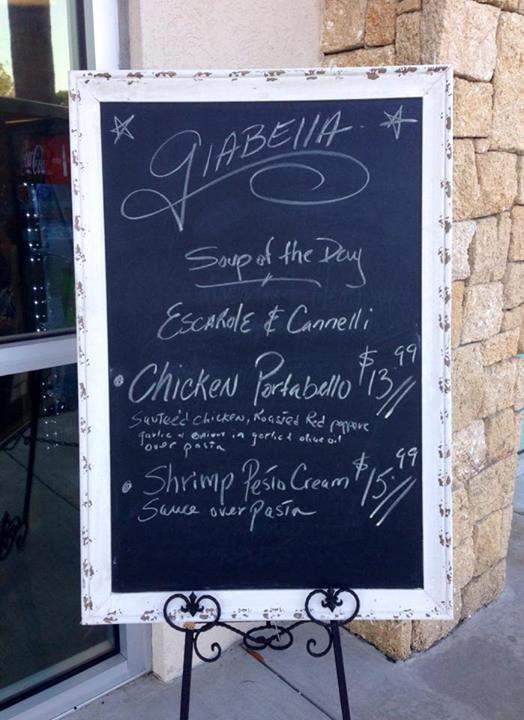 GIABELLA
Soup of the Day
ESCAROLE & Cannelli
Chicken Portabello $13.99
Sauteed chicken, Roasted Red peppers
garlic & onion in garlic & olive oil
over pasta
Shrimp Pesto Cream $15.99
Sauce over Pasta